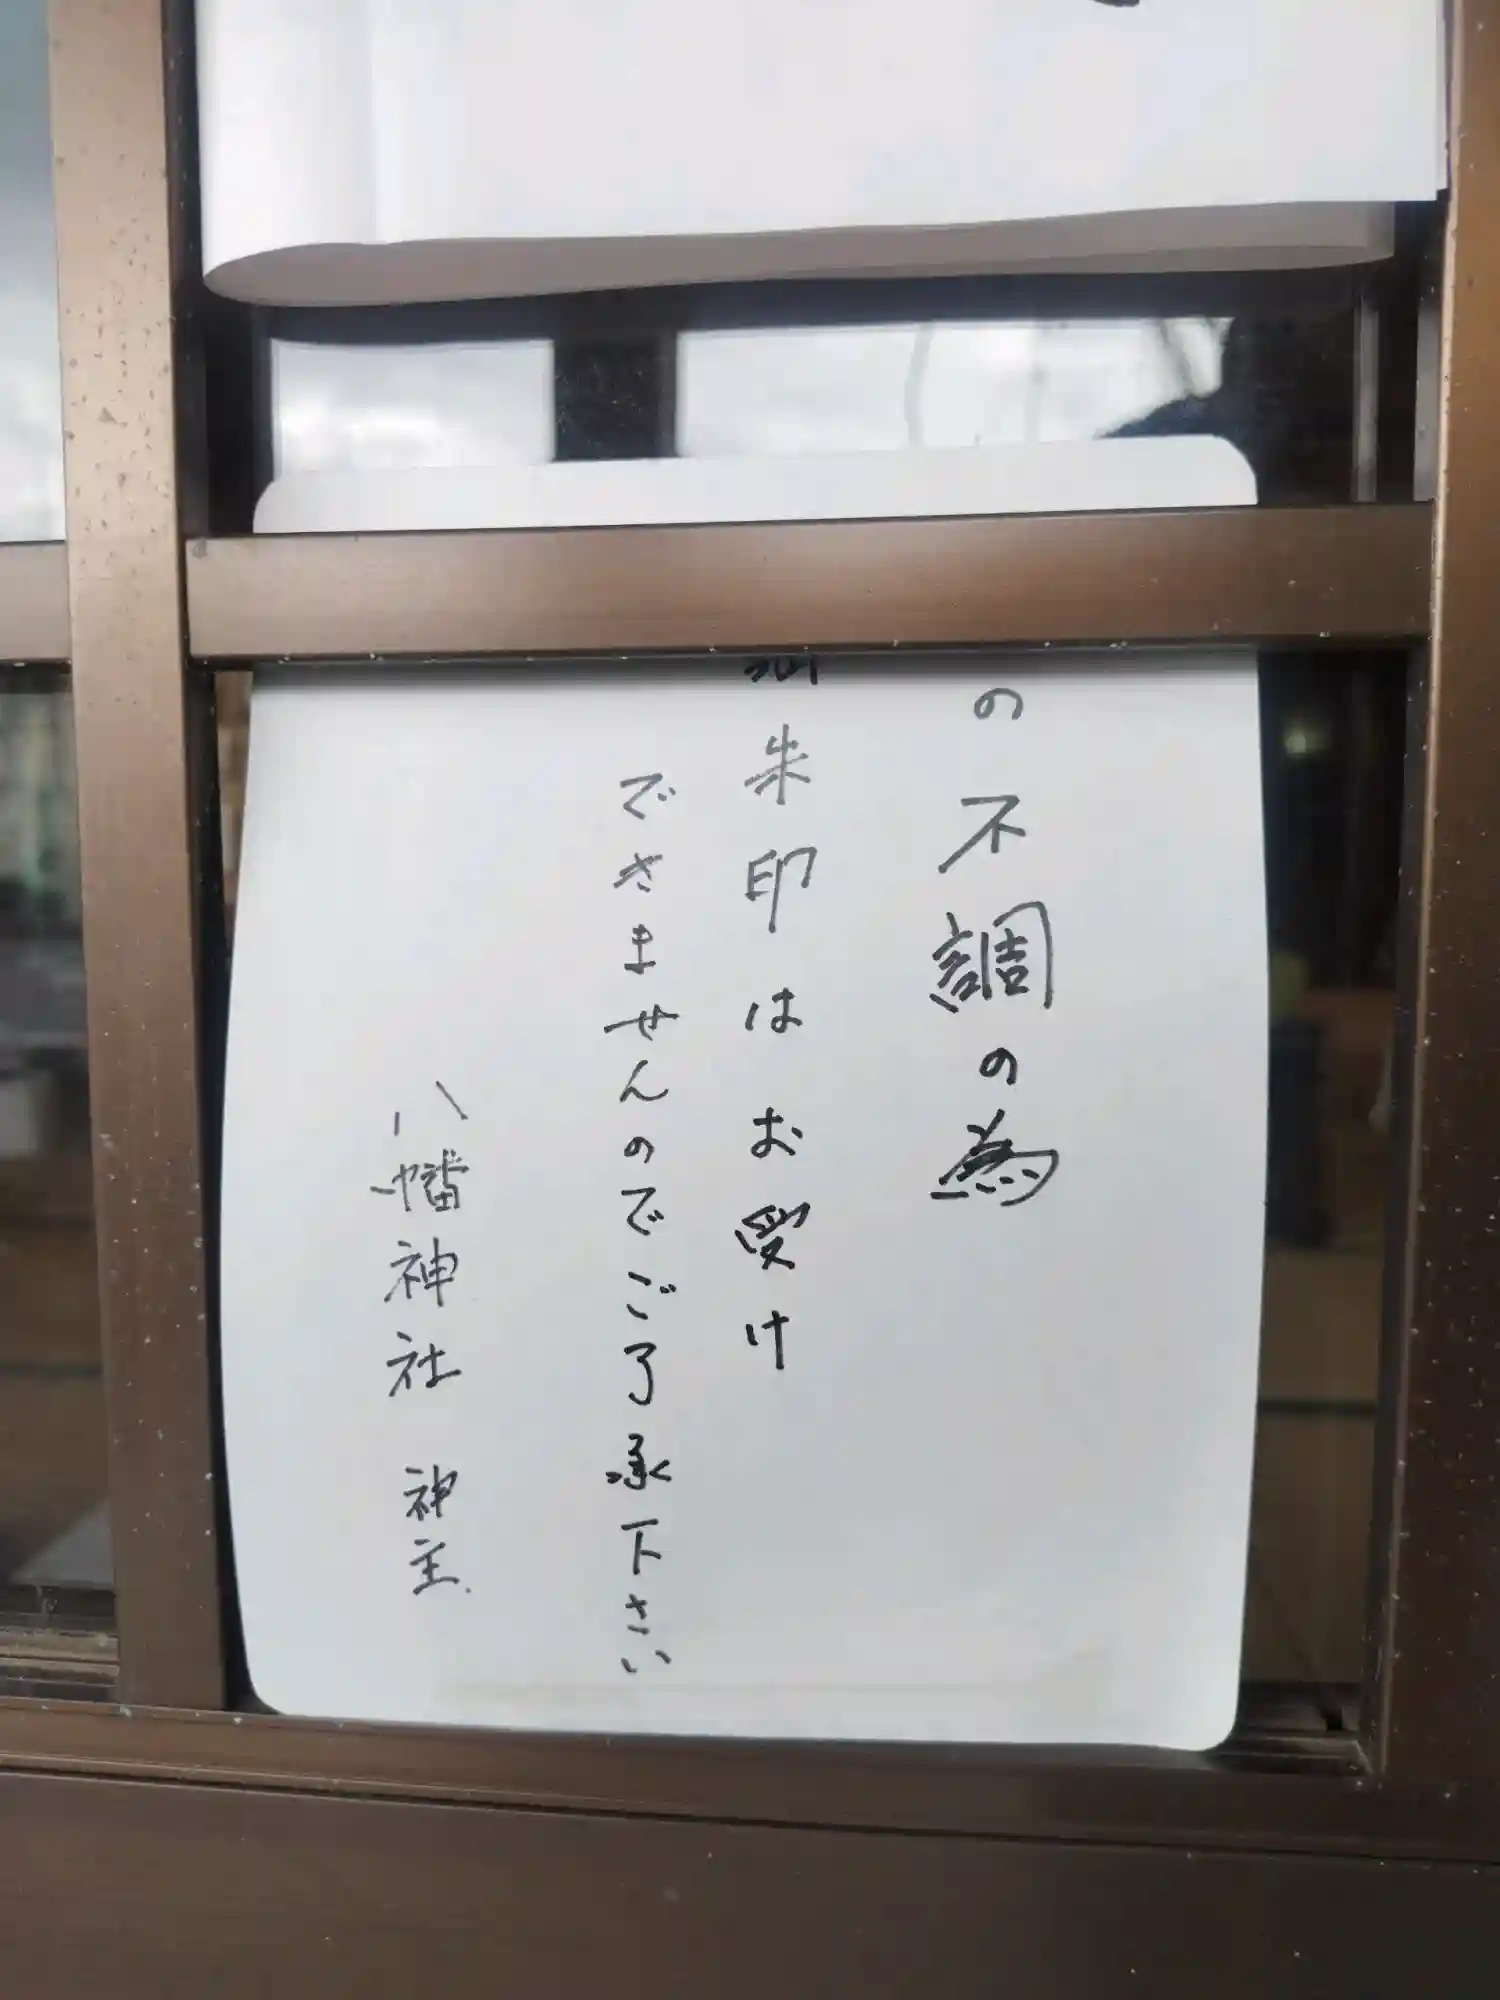 の不調の為
御朱印はお受け
できませんのでご了承下さい
八幡神社 神主